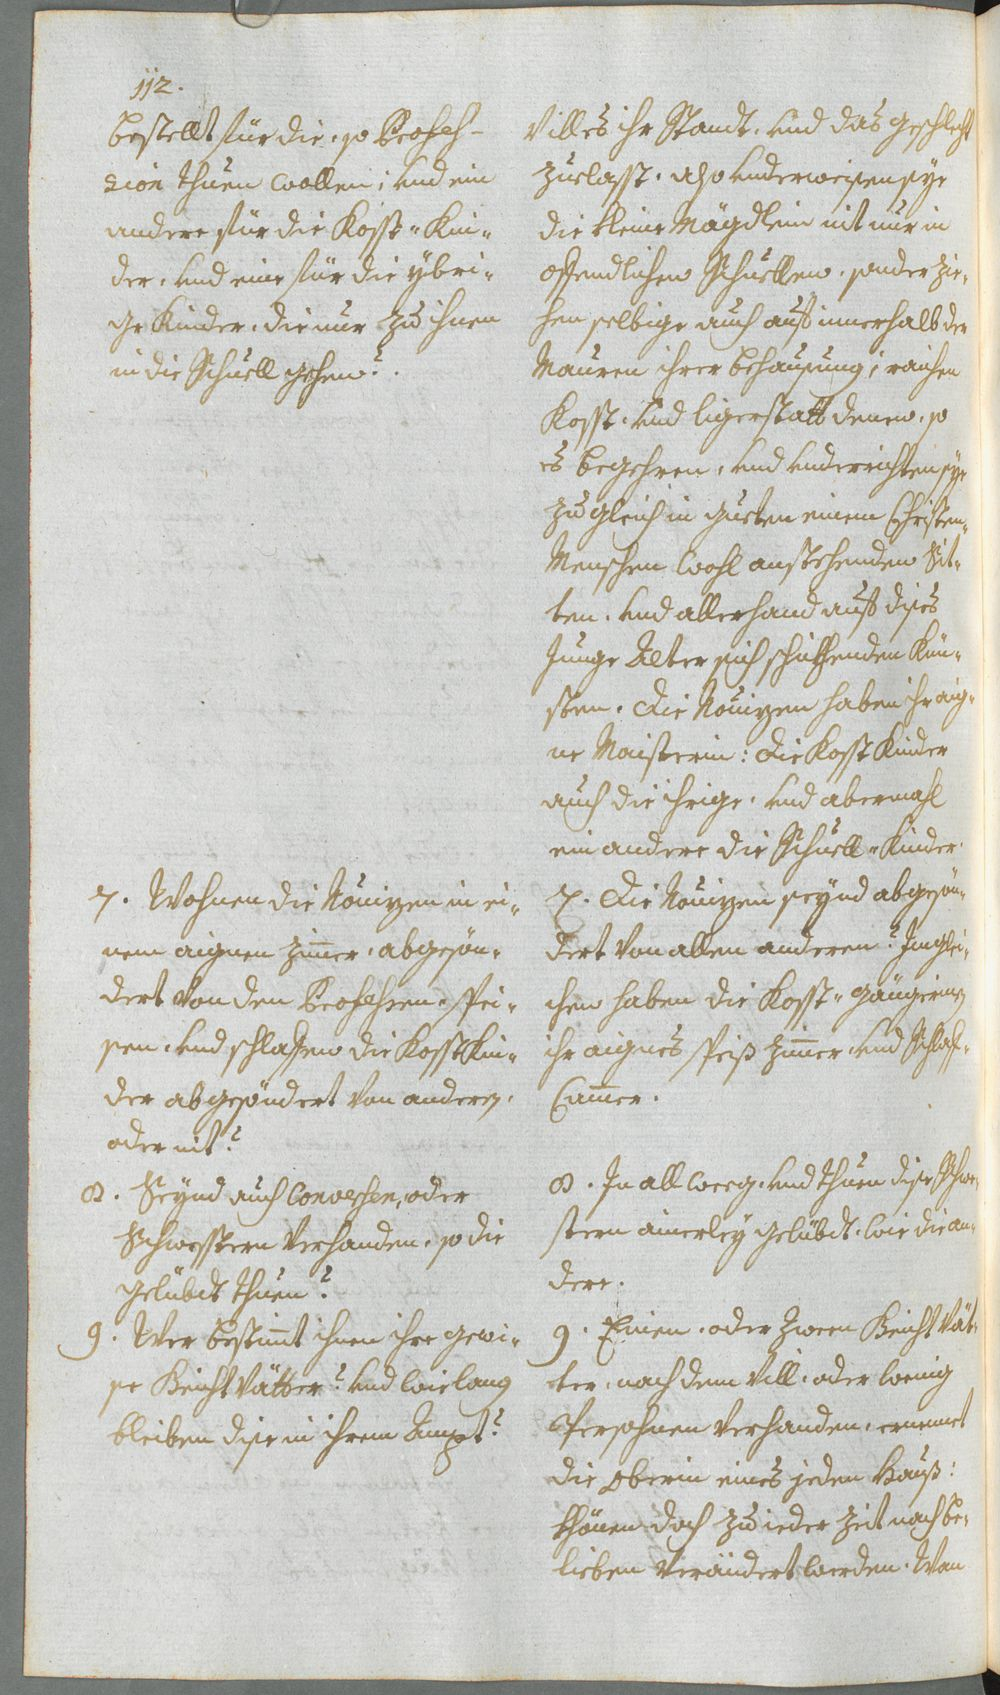 112.
bestellt für die, so Profes-
sion thuen wollen; und ein
andere für die Kosst-Kin-
der, und eine für die ÿbri-
ge Kinder, die nur zu ihnen
in die Schuell gehen?
7. Wohnen die Novizen in ei-
nem aignen Zimer, abgesön-
dert von den Professen, spei-
sen, und schlaffen die Kosst Kin-
der abgesöndert von anderen,
oder nit?
8. Seÿnd auch Conversen, oder
Schwestern verhanden, so die
gelübdt thuen?
9. Wer bestimt ihnen ihre gewi-
se Beicht Vätter? und wie lang
bleiben dise in ihrem Ampt?
villes ihr Standt, und das geschlecht
zuelasst, also underweisen sÿe
die kleine Mägdlein nit nur in
offendlichen Schuellen, sonder zie-
hen selbige auch auf innerhalb der
Mauren ihrer behausung; raichen
Kosst, und ligerstatt denen, so
es begehren, und underrichten sÿe
zugleich in gueten einem Christen-
Menschen wohl anstehenden Sit-
ten, und allerhand auf dises
Junge Alter sich schickhenden Kün-
sten. Die Novizen haben ihr aig-
ne Maisterin: die Kosst Kinder
auch die ihrige, und abermahl
ein andere die Schuell-Kinder.
7. Die Novizen seÿnd abgesön-
dert von allen anderen? Inglei-
chen haben die Kosst-gängerinen
ihr aignes Speiß Zimer, und Schlaf-
Camer.
8. In all weeg, und thuen dise Schwe-
stern ainerleÿ gelübdt, wie die an-
dere.
9. Einen, oder zween Beicht Vät-
ter, nach dem vill, oder wenig
Persohnen verhanden, ernennet
die Oberin eines jeden Hauß:
khönen doch zu ieder Zeit nach be-
lieben verändert werden. Wan